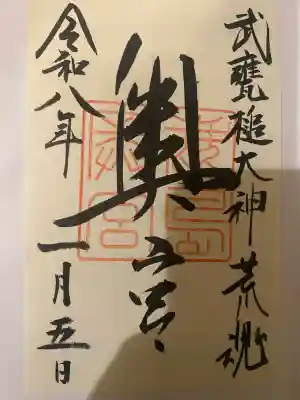 武甕槌大神荒魂
奥宮
鹿島奥宮
令和八年
一月五日